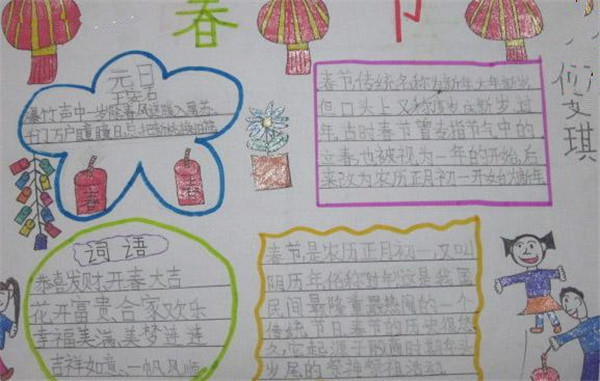 春节
元日
王安石
爆竹声中一岁除春风送暖入屠苏
千门万户瞳瞳日总把新桃换旧符
春
春节传统名称为新年大年新岁
但口头上又称度岁庆新岁过
年古时春节曾专指节气中的
立春也被视为一年的开始后
来改为农历正月初一开始为新年
艾琪
词语
恭喜发财.开春大吉
花开富贵、合家欢乐
幸福美满、美梦连连
吉祥如意、一帆风顺
春节,是农历正月初一,又叫
阴历年,俗称过年这是我国
民间最隆重最热闹的一个
传统节日.春节的历史很悠
久,它起源于殷商时期年头
岁尾的祭神祭祖活动